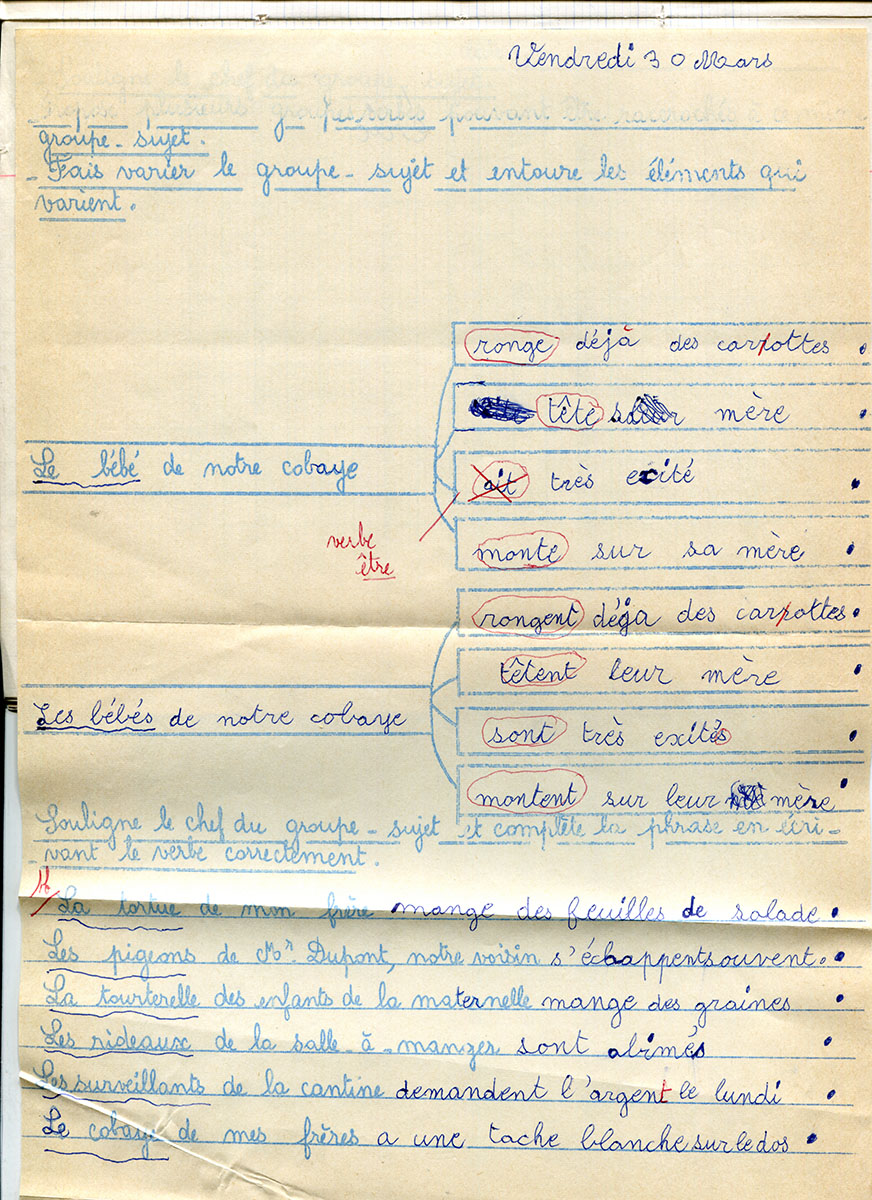 Vendredi 30 Mars
Souligne le chef du groupe
propose plusieurs groupes verbe pouvant être
groupe-sujet.
- Fais varier le groupe-sujet et entoure les éléments qui
varient.
ronge déjà des carrottes.
têtè sa mère.
Le bébé de notre cobaye
ait très exité.
verbe
être
monte sur sa mère.
rongent déja des carrottes.
têtent leur mère.
Les bébés de notre cobaye
sont très exités.
montent sur leur mère.
Souligne le chef du groupe-sujet et complète la phrase en écri-
-vant le verbe correctement.
La tortue de mon frère mange des feuilles de salade.
Les pigeons de Mr. Dupont, notre voisin s'échappent souvent.
La tourterelle des enfants de la maternelle mange des graines.
Les rideaux de la salle-à-manger sont abimés.
Les surveillants de la cantine demandent l'argent le lundi.
Le cobaye de mes frères a une tache blanche sur le dos.